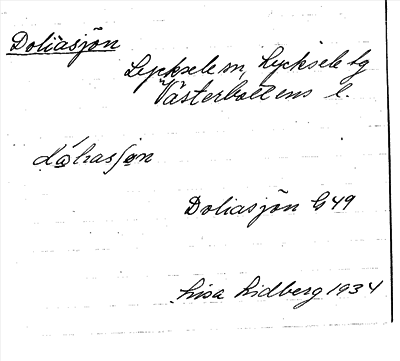 Doliasjön
Lycksele sn, Lycksele lg
Västerbottens l.
Doliasjön G49
Lisa Lidberg 1934